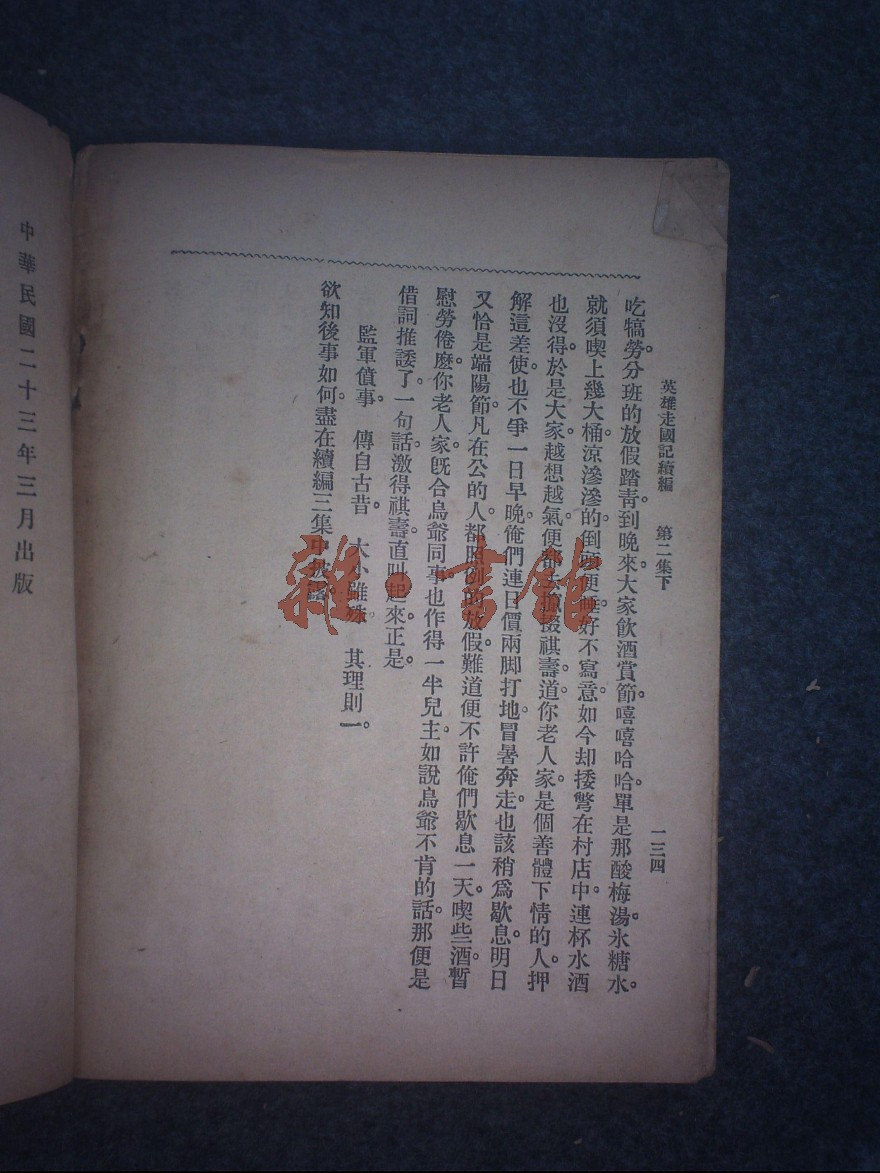 英雄走國記續編　第二集下　一三四
吃犒勞。分班的放假踏青。到晚來。大家飲酒賞節。嘻嘻哈哈。單是那酸梅湯氷糖水。
就須喫上幾大桶。涼滲滲的。倒頭便睡。好不寫意。如今却捼彆在村店中。連杯水酒
也沒得。於是大家越想越氣。便都去攛掇祺壽道。你老人家是個善體下情的人。押
解這差使。也不爭一日早晚。俺們連日價兩脚打地。冒暑奔走。也該稍爲歇息。明日
又恰是端陽節。凡在公的人。都照例的放假。難道便不許俺們歇息一天。喫些酒。暫
慰勞倦麽。你老人家旣合烏爺同事。也作得一半兒主。如說烏爺不肯的話。那便是
借詞推諉了。一句話。激得祺壽直叫起來。正是。
監軍僨事。　傳自古昔。　大小雖殊　其理則一。
欲知後事如何。盡在續編三集中披露。
中華民國二十三年三月出版
雜·書館